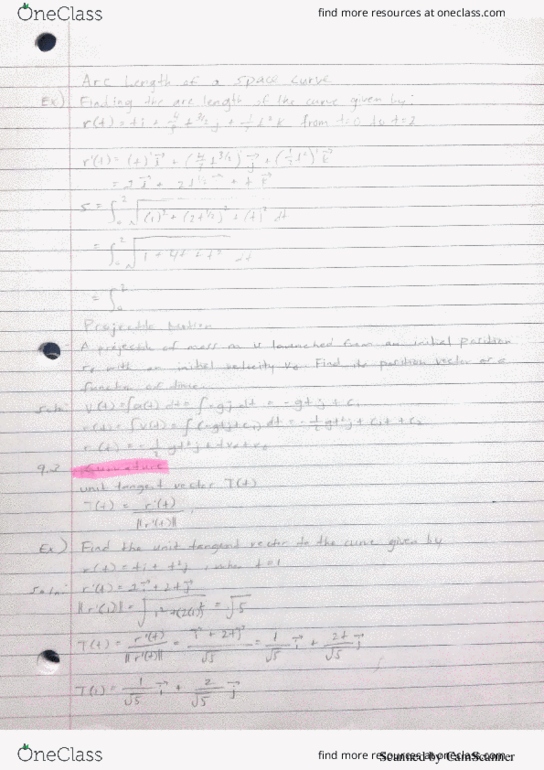 OneClass
find more resources at oneclass.com
Arc Length of a space curve
Ex) Finding the arc length of the curve given by:
r(t) = ti + 4/3 t^3/2 j + 1/2 t² k from t=0 to t=2
r'(t) = (t)' i + (4/3 t^3/2)' j + (1/2 t²)' k
+ 2t^1/2 j + t k
S = ∫₀² √((1)² + (2t^1/2)² + (t)²) dt
= ∫₀² √(1 + 4t + t²) dt
= ∫₀²
Projectile Motion
A projectile of mass m is launched from an initial position
r₀ with an initial velocity v₀. Find its position vector as a
function of time.
Soln: v(t) = ∫a(t) dt = ∫-gj dt = -gt j + c₁
r(t) = ∫v(t) = ∫(-gtj + c₁) dt = -1/2 gt² j + c₁t + c₂
r(t) = -1/2 gt² j + tv₀ + r₀
9.2 Curvature
unit tangent vector T(t)
T(t) = r'(t) / ||r'(t)||
Ex) Find the unit tangent vector to the curve given by
r(t) = ti + t² j, when t=1
Soln: r'(t) = i + 2t j
||r'(1)|| = √(1² + (2(1))²) = √5
T(t) = r'(t) / ||r'(t)|| = i + 2t j / √5 = 1/√5 i + 2t/√5 j
T(1) = 1/√5 i + 2/√5 j
OneClass
find more resources at oneclass.com
Scanned by CamScanner